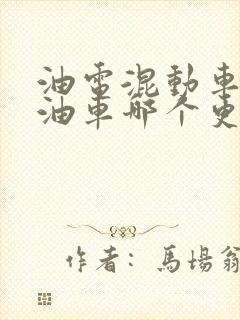 油電混動車
油車哪个更
作者：馬場翁